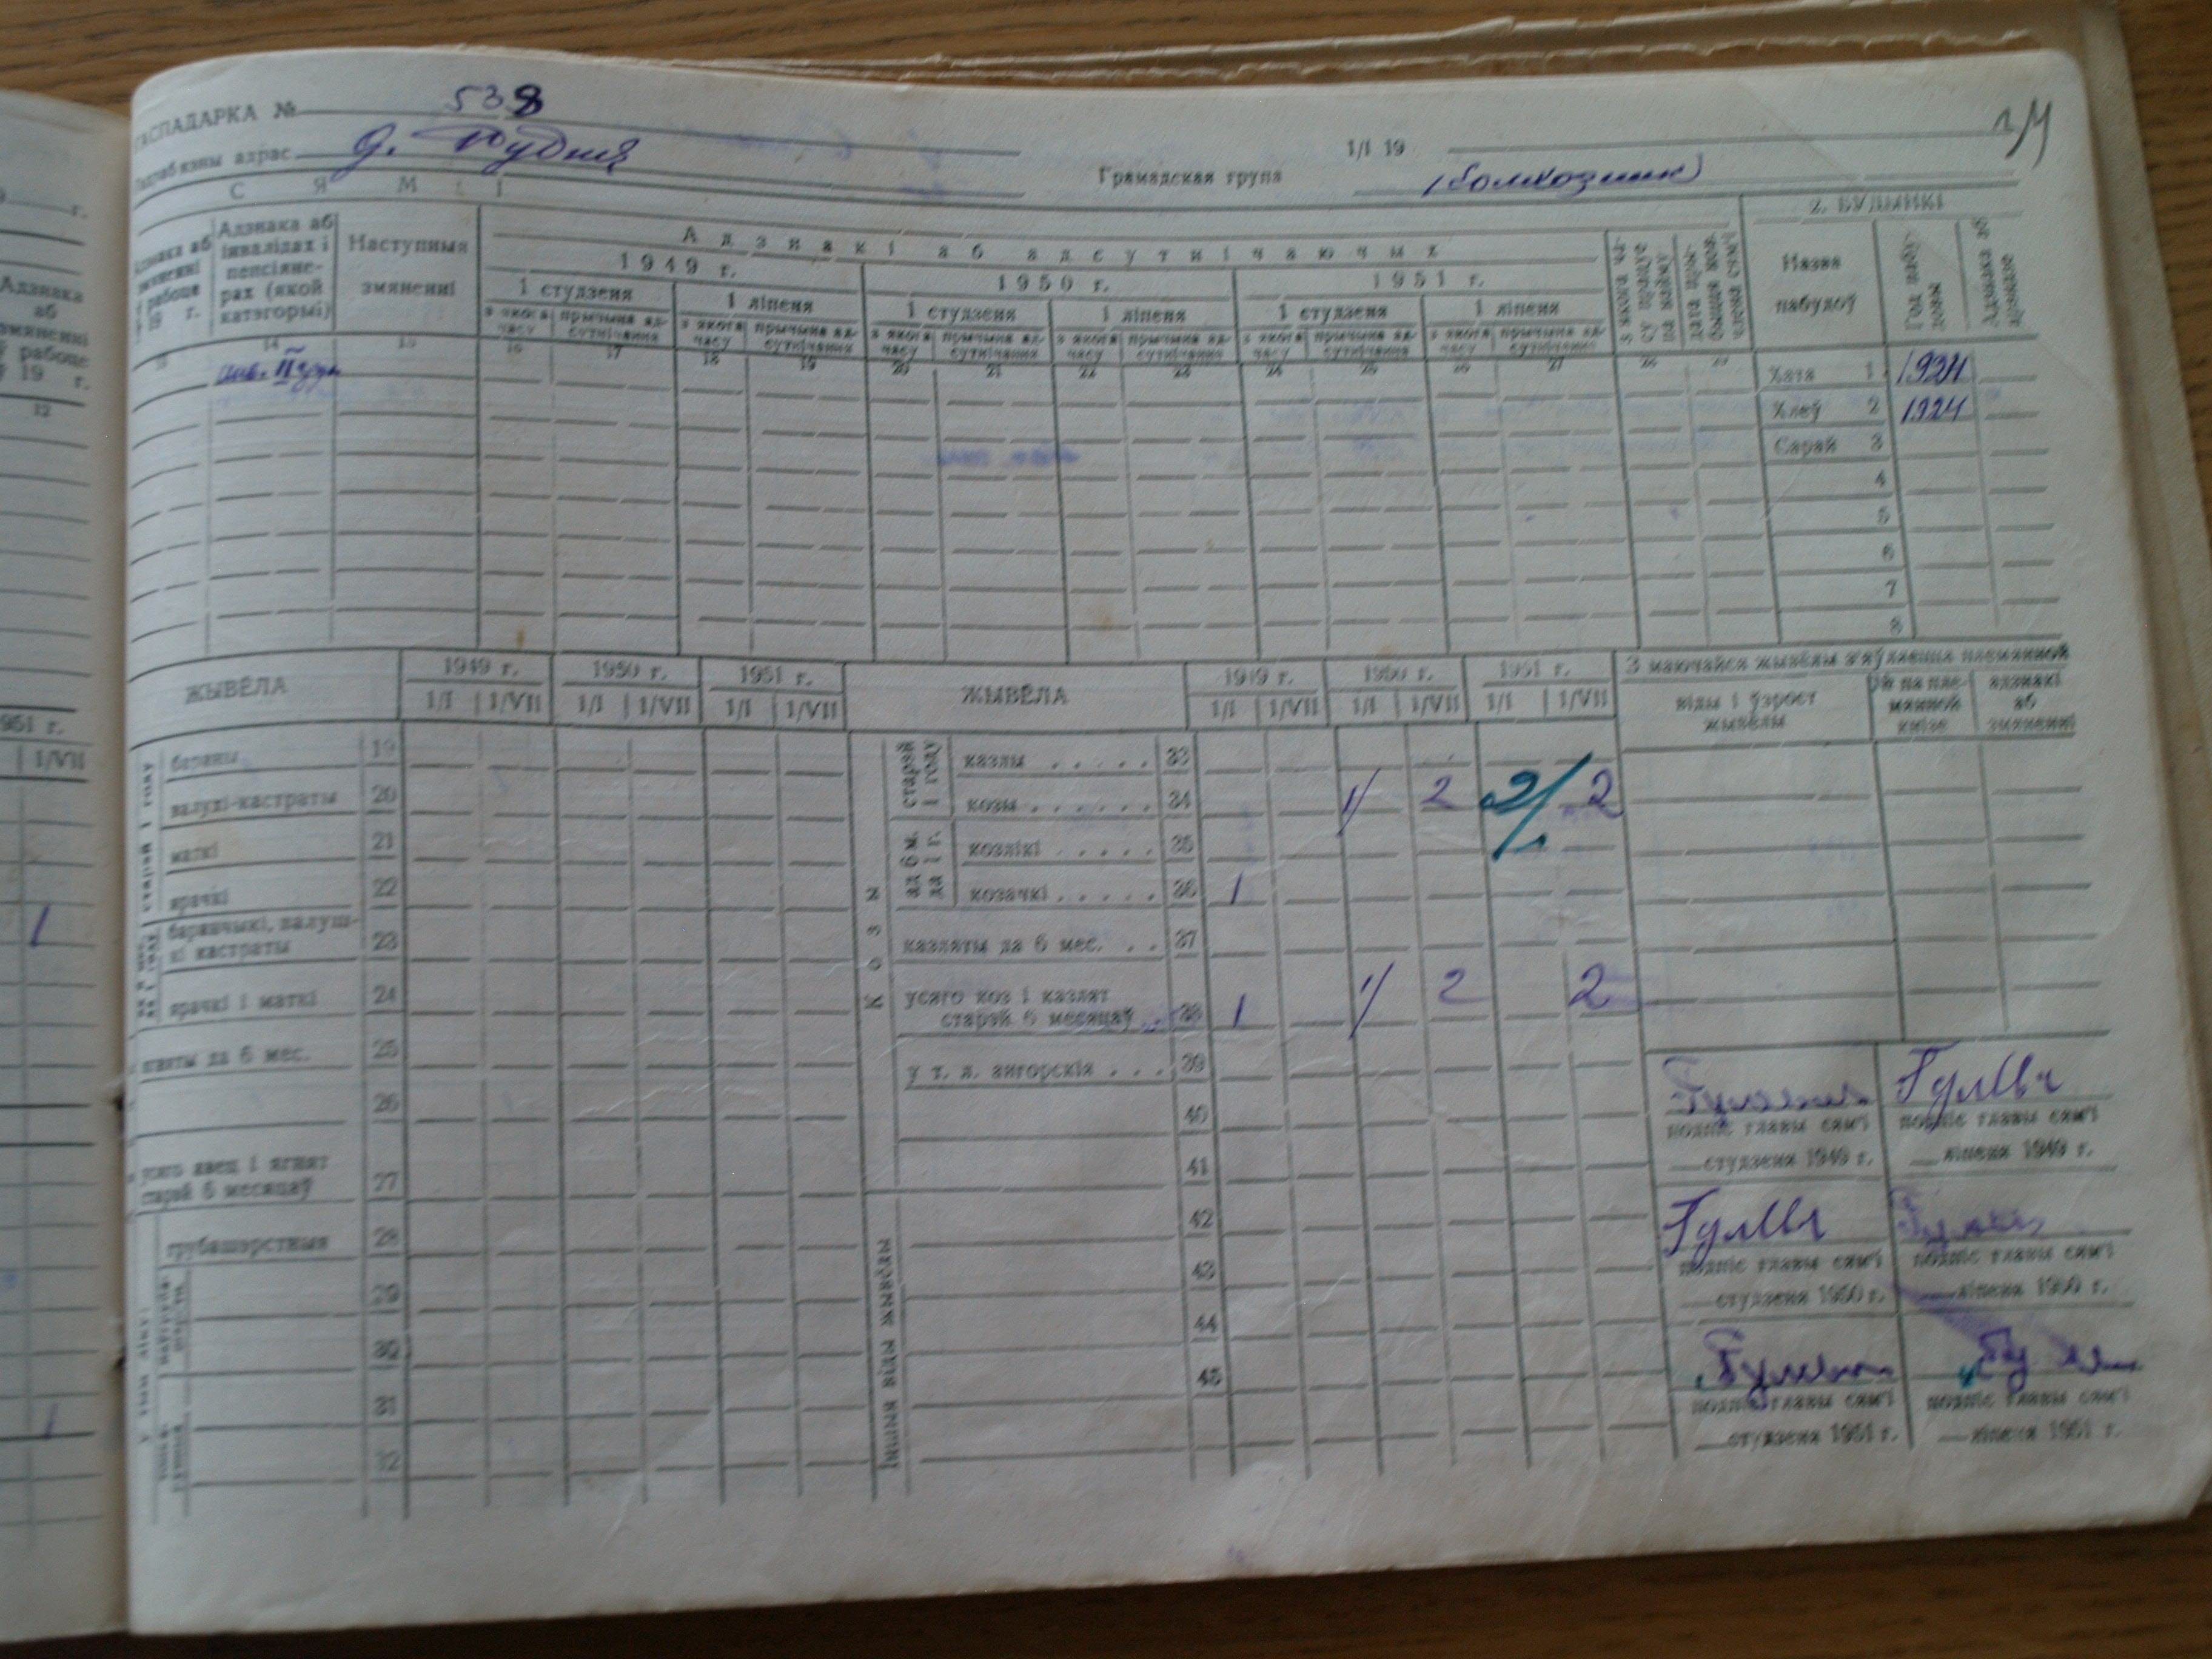 ГАСПАДАРКА № 538
адрас д. Рудня
1/I 19
Грамадская група (колхозник)
СЯМ'І
2. БУДЫНКІ
Адзнака аб інвалідах і пенсіянерах (якой катэгорыі)
Наступныя змяненні
Адзнакі аб адсутнічаючых
1949 г. 1950 г. 1951 г.
1 студзеня 1 ліпеня 1 студзеня 1 ліпеня 1 студзеня 1 ліпеня
з якога часу прычына адсутнічання з якога часу прычына адсутнічання з якога часу прычына адсутнічання з якога часу прычына адсутнічання з якога часу прычына адсутнічання з якога часу прычына адсутнічання
Назва пабудоў
Год пабудовы
14 15 16 17 18 19 20 21 22 23 24 25 26 27 28 29
инв. II груп
Хата 1 1924
Хлеў 2 1924
Сарай 3
4
5
6
7
8
ЖЫВЁЛА 1949 г. 1950 г. 1951 г. ЖЫВЁЛА 1949 г. 1950 г. 1951 г.
1/I 1/VII 1/I 1/VII 1/I 1/VII 1/I 1/VII 1/I 1/VII 1/I 1/VII
З маючайся жывёлы з'яўляецца племянной
віды і ўзрост жывёлы
№ па племянной кнізе
адзнакі аб змяненні
старэй 1 году
бараны 19
валухі-кастраты 20
маткі 21
ярачкі 22
баранчыкі, валушкі кастраты 23
ярачкі і маткі 24
ягняты да 6 мес. 25
26
усяго авец і ягнят старэй 6 месяцаў 27
грубашэрстныя 28
29
30
31
32
КОЗЫ
старэй 1 году
казлы 33
козы 34 1/ 2 2/ 2
ад 6 м. да 1 г.
козлікі 35
козачкі 36 1
казляты да 6 мес. 37
усяго коз і казлят старэй 6 месяцаў 38 1 1/ 2 2
у т. л. ангорскія 39
40
41
Іншыя віды жывёлы
42
43
44
45
подпіс главы сям'і
студзеня 1949 г.
подпіс главы сям'і
ліпеня 1949 г.
подпіс главы сям'і
студзеня 1950 г.
подпіс главы сям'і
ліпеня 1950 г.
подпіс главы сям'і
студзеня 1951 г.
подпіс главы сям'і
ліпеня 1951 г.